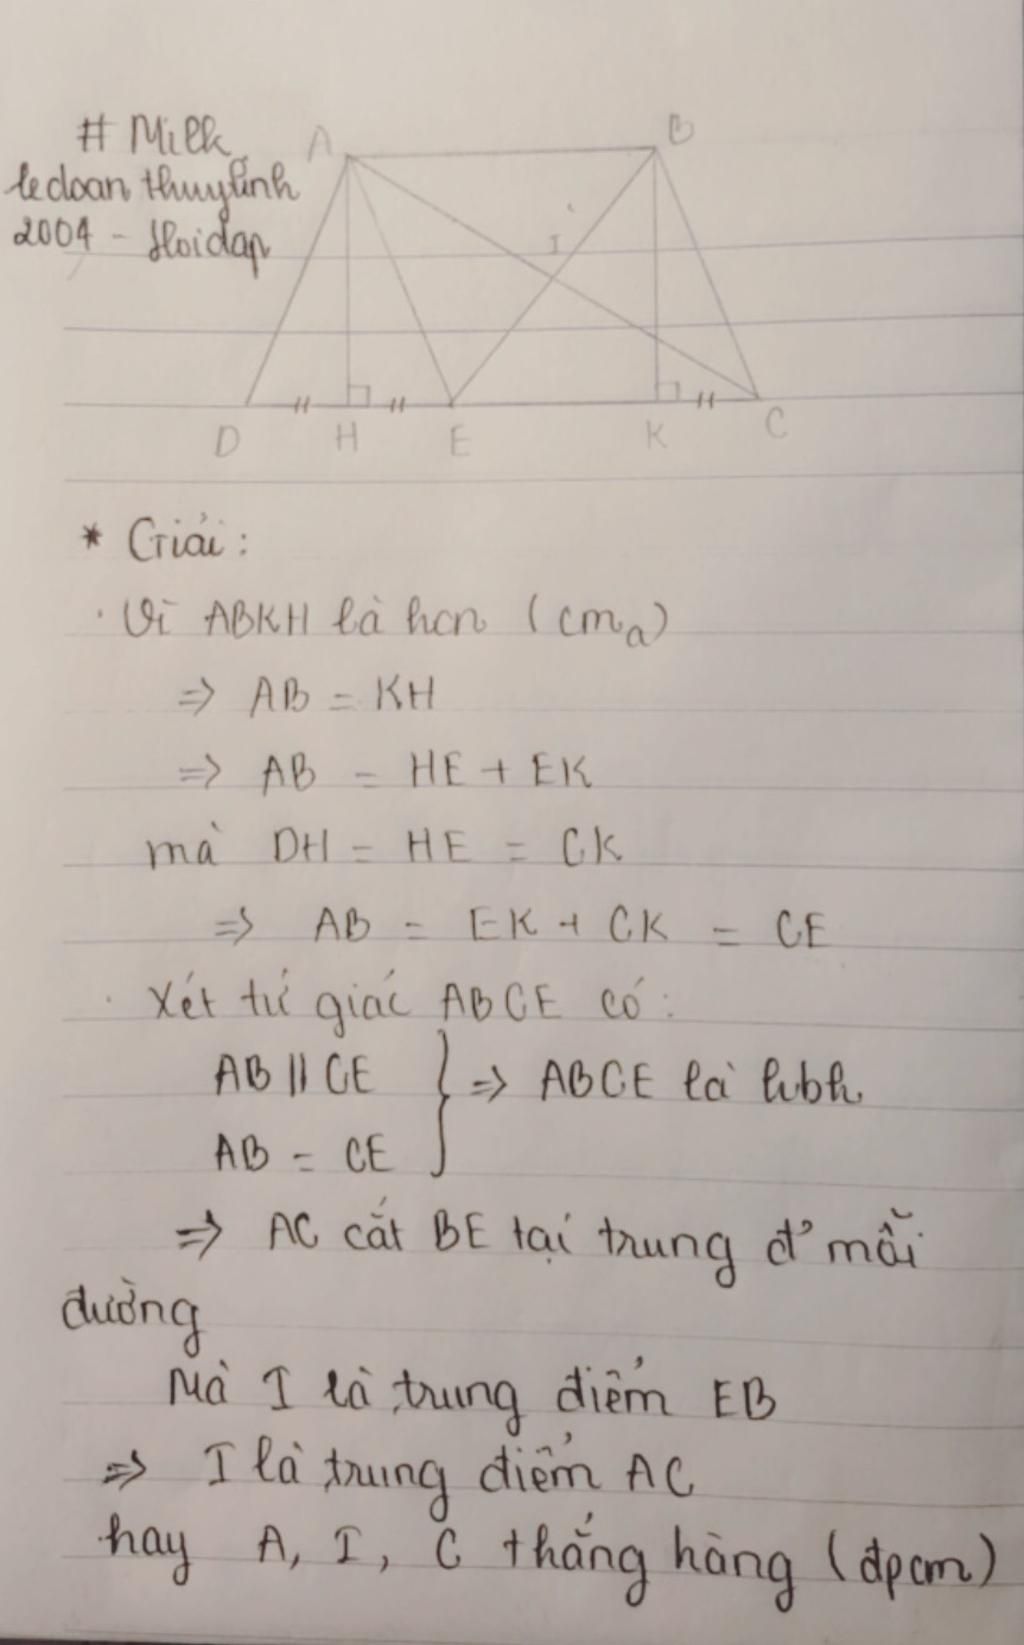 # Milk
ledoan thuylinh
2004 - Hoidap
A
B
I
D
H
E
K
C
* Giải:
. Vì ABKH là hcn (cm a)
=> AB = KH
=> AB = HE + EK
mà DH = HE = CK
=> AB = EK + CK = CE
. Xét tứ giác ABCE có:
AB || CE } => ABCE là hbh
AB = CE
=> AC cắt BE tại trung đ' mỗi
đường
Mà I là trung điểm EB
=> I là trung điểm AC
hay A, I, C thẳng hàng (đpcm)